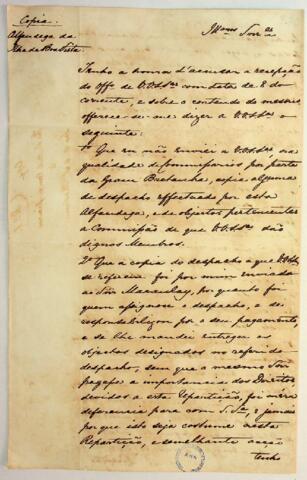 Copia.
Illmos Snres
Alfandega da
Ilha de Boa Vista
Tenho a honra d'accusar a recepção
do Offo de V.V.S.Sas com data de 8 do
corrente, e sobre o contendo do mesmo
offerece-se-me dizer a V.V.S.Sas o
seguinte:
1º Que eu não enviei a V.V.S.Sas na
qualidade de Commissarios por parte
da Gram Bretanha, copia alguma
de despacho effectuado por esta
Alfandega, e de objectos pertencentes
a Commissão de que V.V.S.Sas são
dignos Membros.
2º Que a copia do despacho a que V.V.S.Sas
se referem foi por mim enviada
ao Snr Macaulay, por quanto foi
quem assignou o despacho, e se
responsabilizou por o seu pagamento
e se lhe mandei entregar os
objectos designados no referido
despacho, sem que o mesmo Snr
pagasse a importancia dos Direitos
devidos a esta Repartição, foi mera
differencia para com S. Sa, e jamais
por que isto seja costume nesta
Repartição, e semelhante acção
tenho